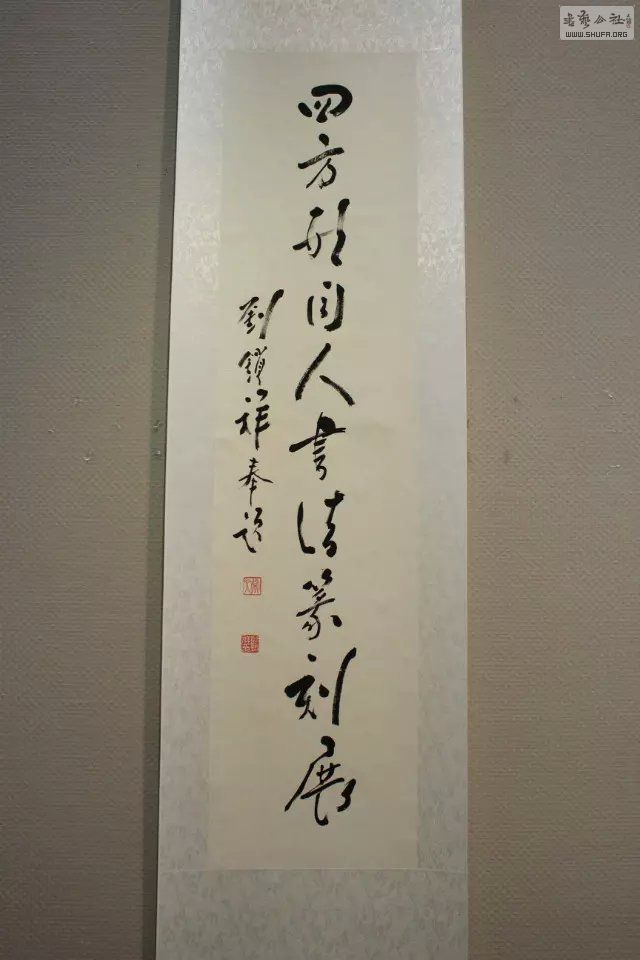 四方形同人書法篆刻展
劉鎖祥奉題
書藝公社
WWW.SHUFA.ORG